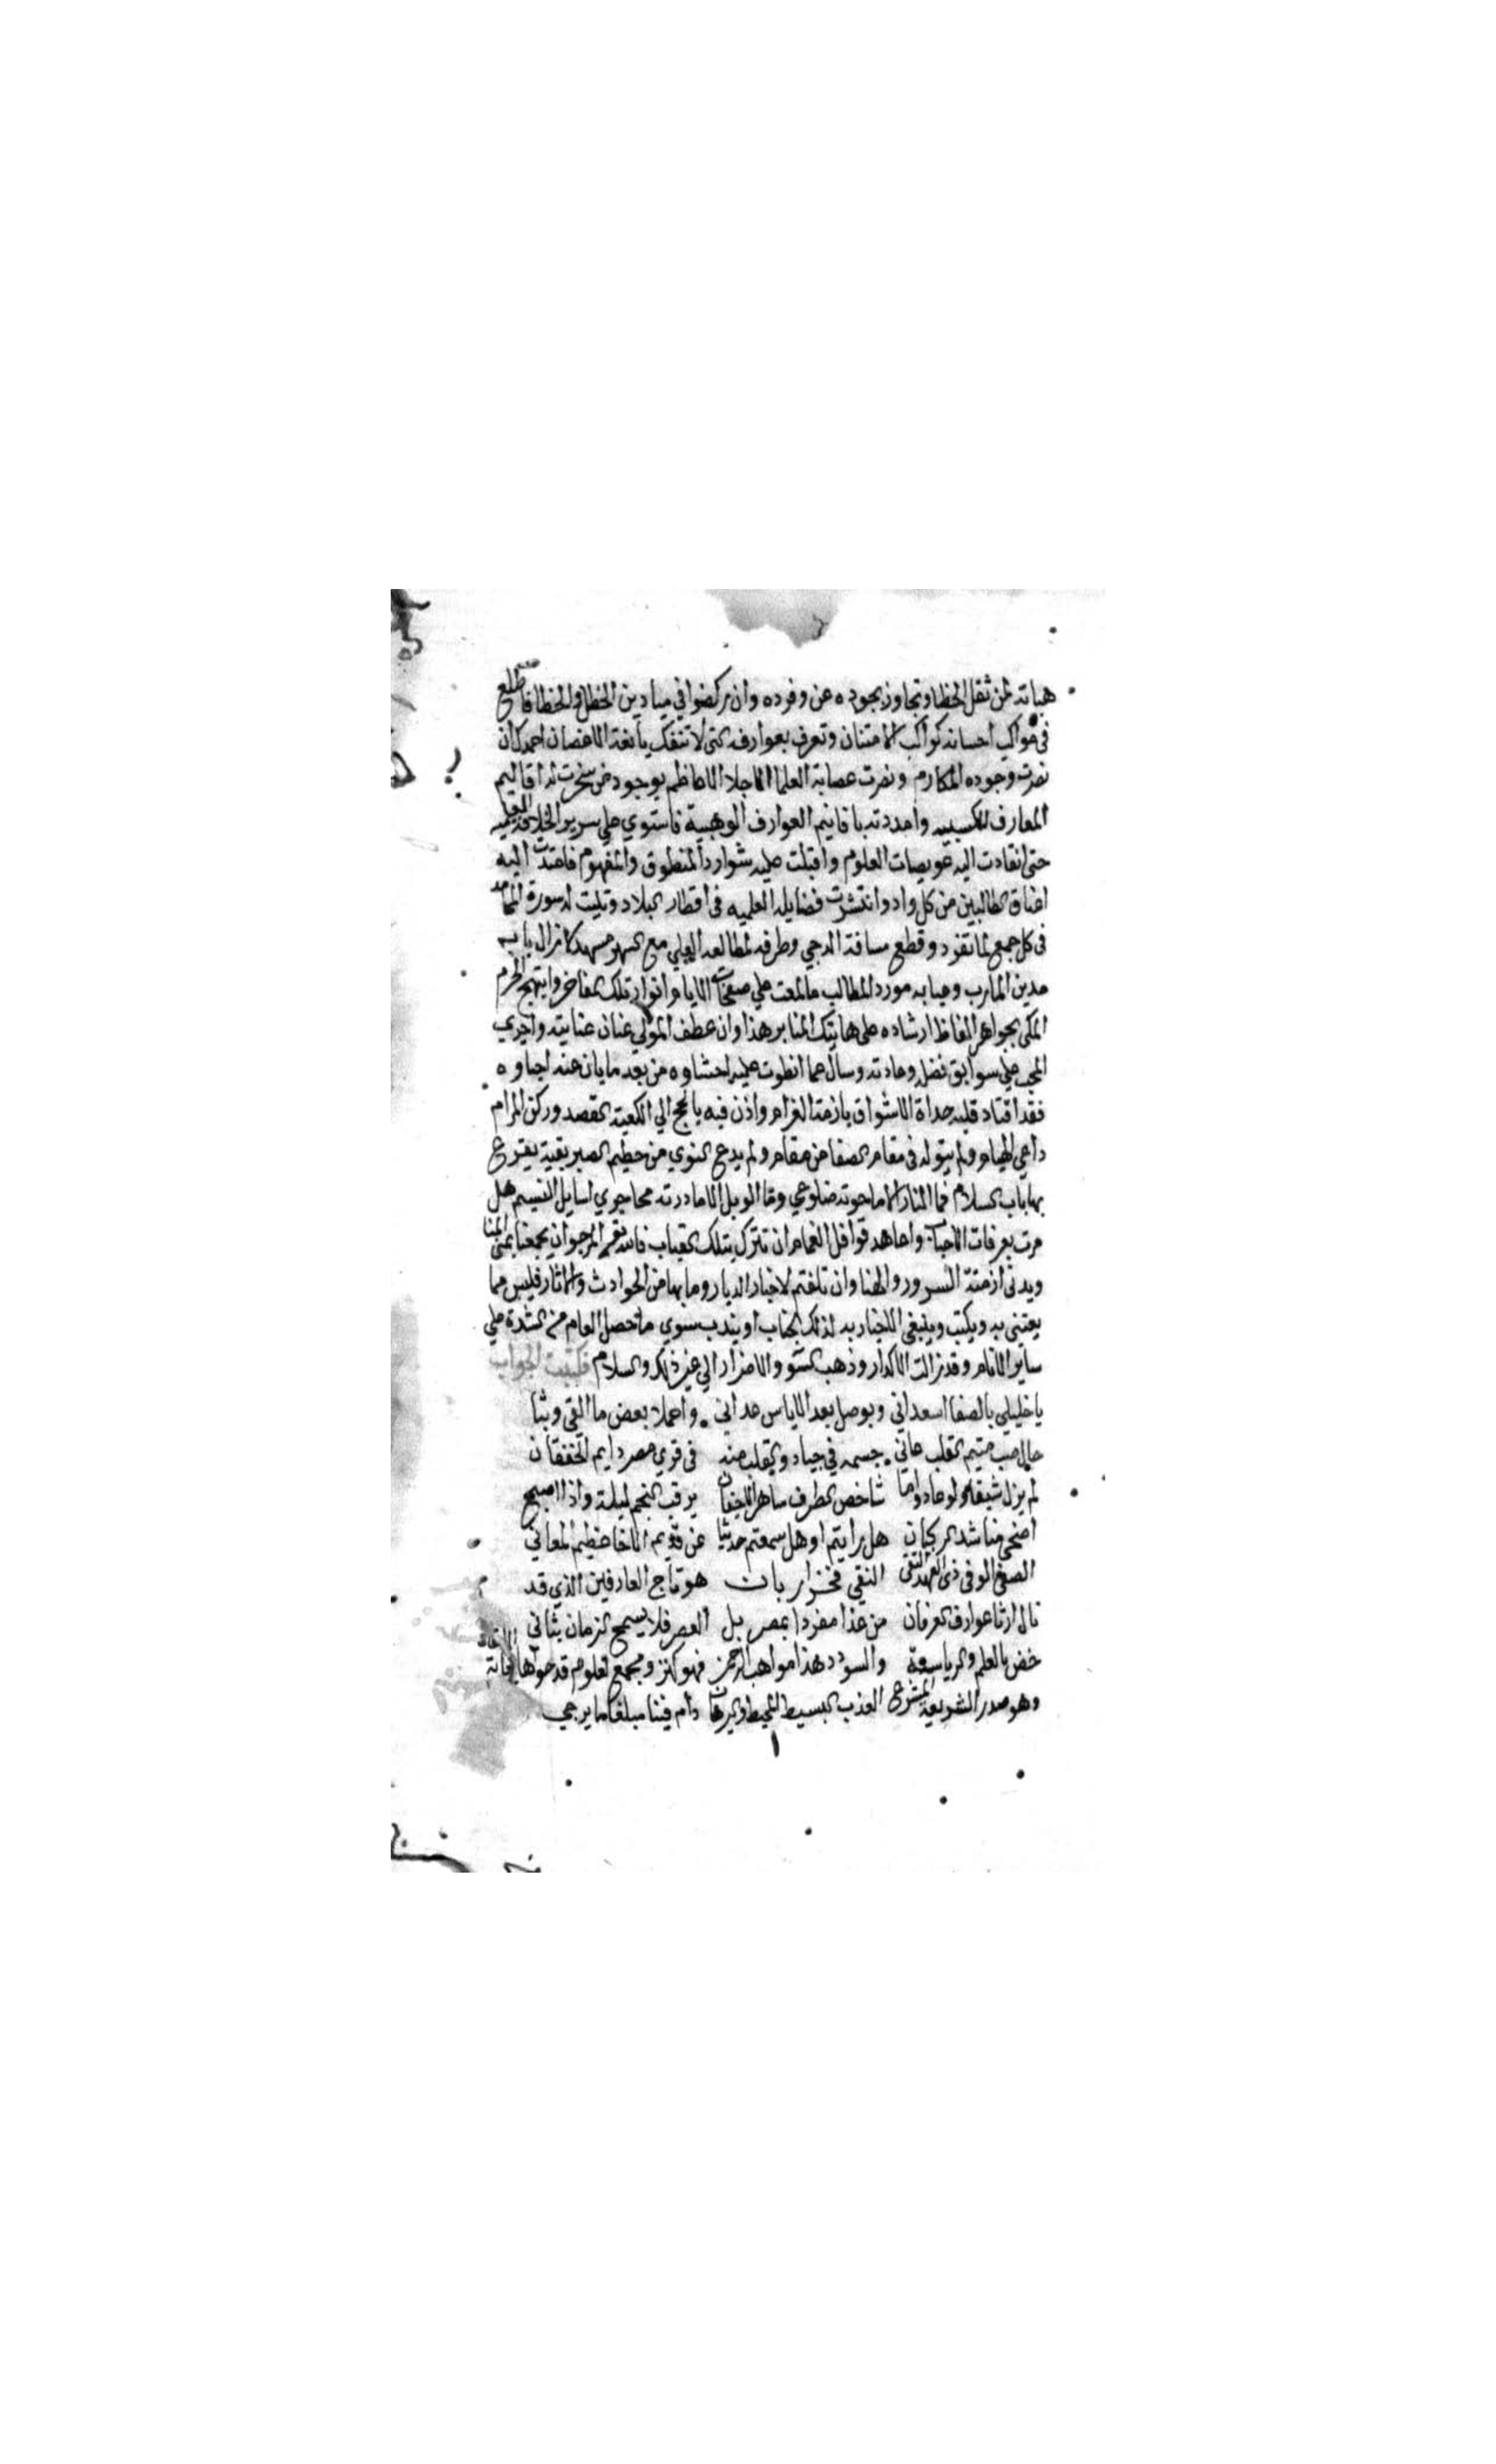 هباته لمن ثقل الخطا وتجاوز بجوده عن وفوده وان ركضوا في ميادين الخطل والخطا فاطلع
في مواكب احسانه كواكب الامتنان وتعرف بعوارفه التي لا تنفك يانعة الاغصان احمدك ان
نضرت وجوده المكارم ونصرت عصابة العلما الاجلا الاعاظم بوجود من سخرت له اقاليم
المعارف الكسبيه وامددته بافانيم العوارف الوهبية فاستوي علي سرير الخلافة العلميه
حتى انقادت اليه عويصات العلوم واقبلت عليه شوارد المنطوق والمفهوم فامتدت اليه
اعناق الطالبين من كل واد وانتشرت فضايله العلميه في اقطار البلاد وتليت له سورة المحامد
في كل جمع لما تفرد وقطع مسافة الدجي وطرفه لمطالعه العلي مع السهر مسهد لا زال بابه
مدين المارب وجنابه مورد المطالب ما لمعت علي صفحات الايام انوار تلك المفاخر وابتهج الحرم
المكي بجواهر الفاظ ارشاده على هاتيك المنابر هذا وان عطف المولي عنان عنايته واجري
المحب علي سوابق فضله وعادته وسال عما انطوت عليه احشاوه من بعد ما بان عنه احباوه
فقد اقتاد قلبه حداة الاشواق بازمة الغرام واذن فيه بالحج الي الكعبة القصد وركن المرام
داعي الهيام ولم يتوله في مقام الصفا من مقام ولم يدع النوي من حطيم الصبر بقية يقرع
بها باب السلام فما النار الا ما حوته ضلوعي وما الوبل الا ما درته محاجري اسايل النسيم هل
مرت بعرفات الاحباب واعاهد قوافل الغمام ان تترك بتلك القباب فالله تعالى المرجو ان يجمعنا بمنى المنا
ويدني ازمنة السرور والهنا وان تلفتم لاخبار الديار وما بها من الحوادث والاثار فليس مما
يعتنى به ويكتب وينبغي الاخبار به لذلك الجناب او يندب سوي ما حصل العام من الشدة علي
ساير الانام وقد زالت الاكدار وذهب السو والاضرار الي غير ذلك والسلام فكتبت الجواب
يا خليلي بالصفا اسعداني وبوصل بعد الاياس عداني واحملا بعض ما القي وبثا
حال صب متيم القلب عاني جسمه في جياد والقلب منه في قري مصر دايم الخفقان
لم يزل شيقا ولوعا دواما شاخص الطرف ساهر الاجفان يرقب النجم ليله واذا اصبح
اضحى مناشد الركبان هل رايتم او هل سمعتم حديثا عن قويم الاخا عظيم المعاني
الصفي الوفي ذي العهد التقي النقي فخزار بان هو تاج العارفين الذي قد
نال ارثا عوارف العرفان من غدا مفردا بمصر بل العصر فلا يسمح الزمان بثاني
خص بالعلم والرياسة والسودد هذا مواهب الرحمن فهو كنز ومجمع لعلوم قد حواها
وهو صدر الشريعة المشرع العذب البسيط المحيط والبرهان دام فينا مبلغا ما يرجي